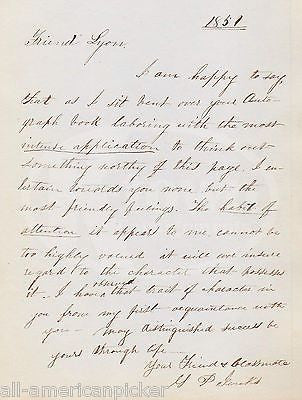 1851
Friend Lyon,
I am happy to say,
that as I sit bent over your Auto-
graph book laboring with the most
intense application to think out
something worthy of this page, I en-
tertain towards you none but the
most friendly feelings. The habit of
attention it appears to me cannot be
too highly valued it will ever insure
regard to the character that possesses
it. I have observed that trait of character in
you from my first acquaintance with
you — may distinguished success be
yours through life —
Your Friend & Classmate
all-americanpicker